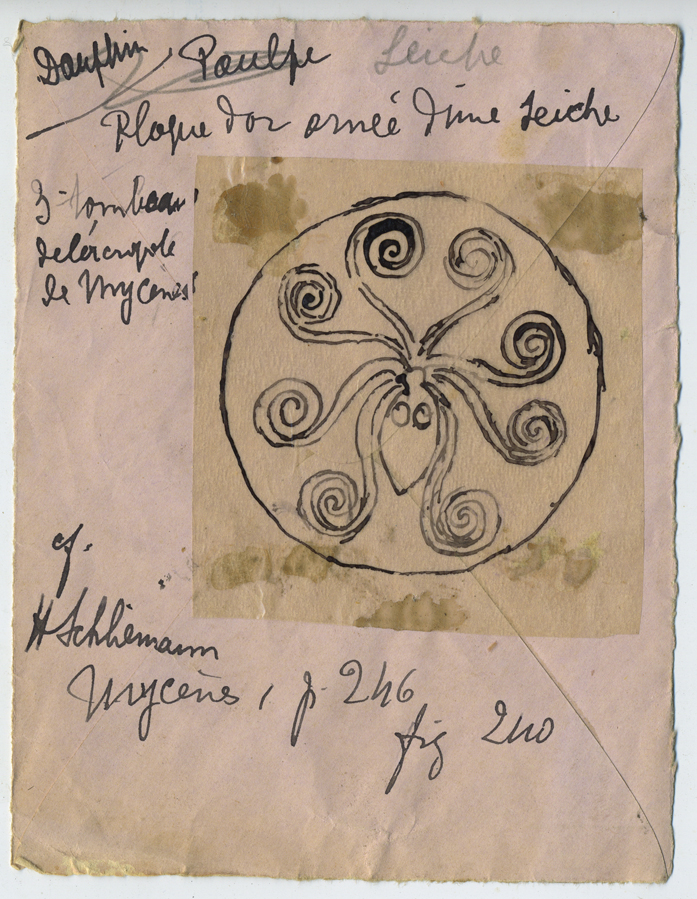 Dauphin Poulpe Seiche
Plaque d'or ornée d'une Seiche
3e tombeau
de l'acropole
de Mycènes
cf.
H Schliemann
Mycènes, p. 246
fig 240